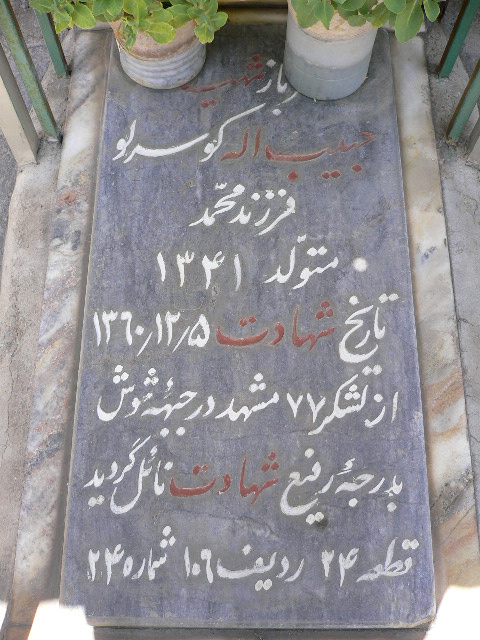 شهید
حبیب اله کوسرلو
فرزند محمد
متولد ۱۳۴۱
تاریخ شهادت ۱۳۶۰/۱۲/۵
از لشکر ۷۷ مشهد در جبههٔ شوش
بدرجهٔ رفیع شهادت نائل گردید
قطعه ۲۴ ردیف ۱۰۶ شماره ۲۴